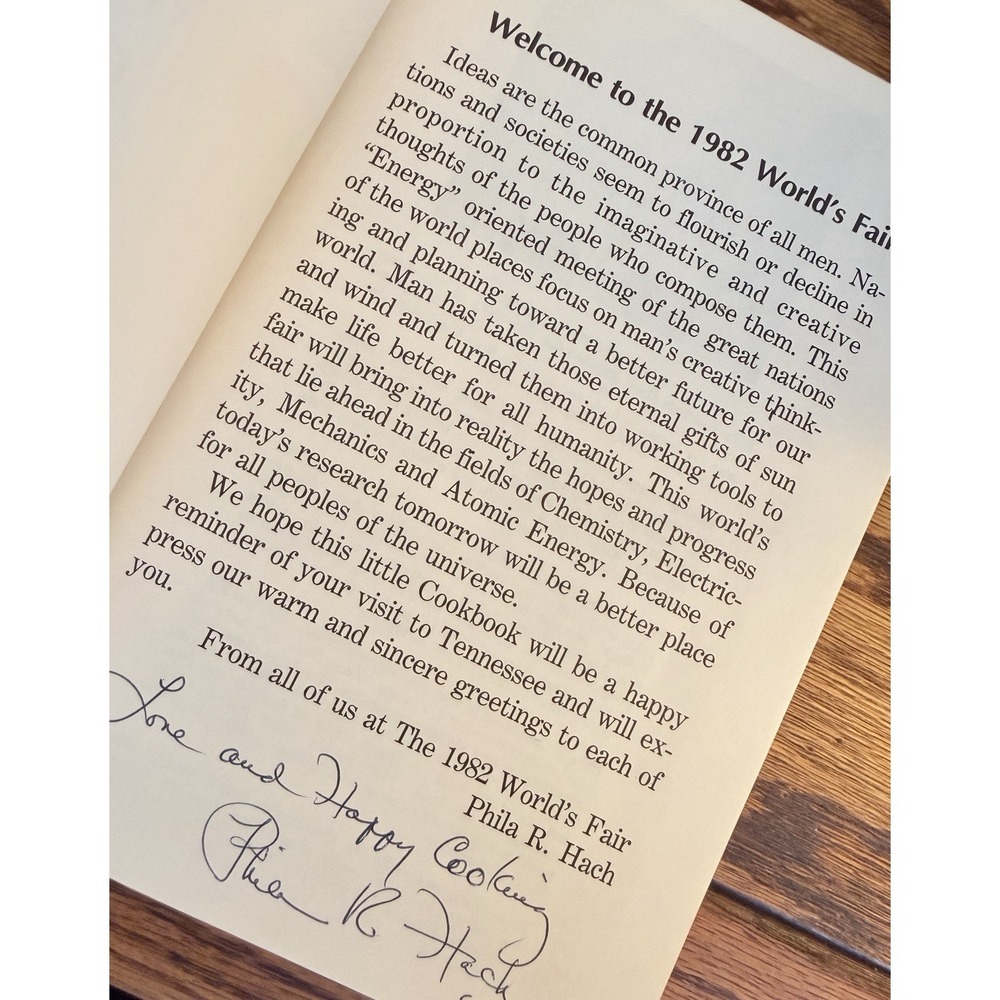 Welcome to the 1982 World's Fair
Ideas are the common province of all men. Na-
tions and societies seem to flourish or decline in
proportion to the imaginative and creative
thoughts of the people who compose them. This
“Energy” oriented meeting of the great nations
of the world places focus on man's creative think-
ing and planning toward a better future for our
world. Man has taken those eternal gifts of sun
and wind and turned them into working tools to
make life better for all humanity. This world's
fair will bring into reality the hopes and progress
that lie ahead in the fields of Chemistry, Electric-
ity, Mechanics and Atomic Energy. Because of
today's research tomorrow will be a better place
for all peoples of the universe.
We hope this little Cookbook will be a happy
reminder of your visit to Tennessee and will ex-
press our warm and sincere greetings to each of
you.
From all of us at The 1982 World's Fair
Phila R. Hach
Love and Happy Cooking
Phila R Hach